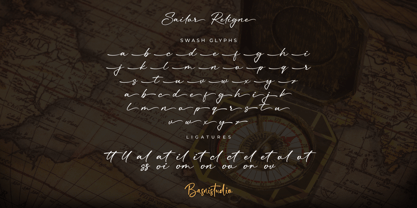 Sailor Religne
SWASH GLYPHS
a b c d e f g h i
j k l m n o p q r
s t u v w x y z
a b c d e f g h i j k
l m n o p q r s t u
v w x y z
LIGATURES
tt ll al at il it cl ct el et ol ut
ss oi om on ou on ov
Basnistudio